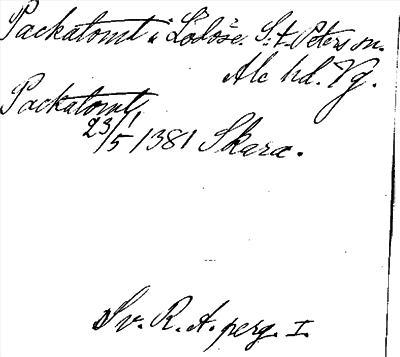 Packatomt i Lödöse. S:t Peters sn.
Ale hd. Vg.
Packatomt
23/5 1381 Skara.
Sv. R. A. perg. I.